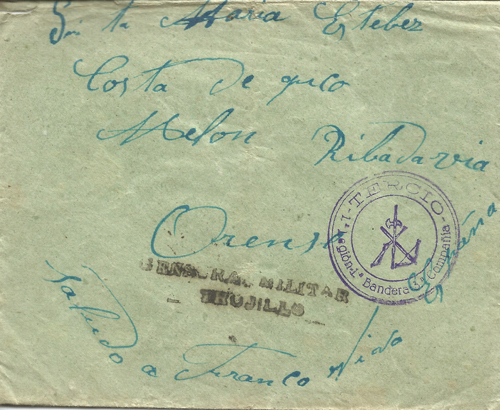 Srta María Estebez
Costa de
Melon Ribadavia
Orense
1er TERCIO
Legión-1ª Bandera Compañia
CENSURA MILITAR
TRUJILLO
Saludo a Franco